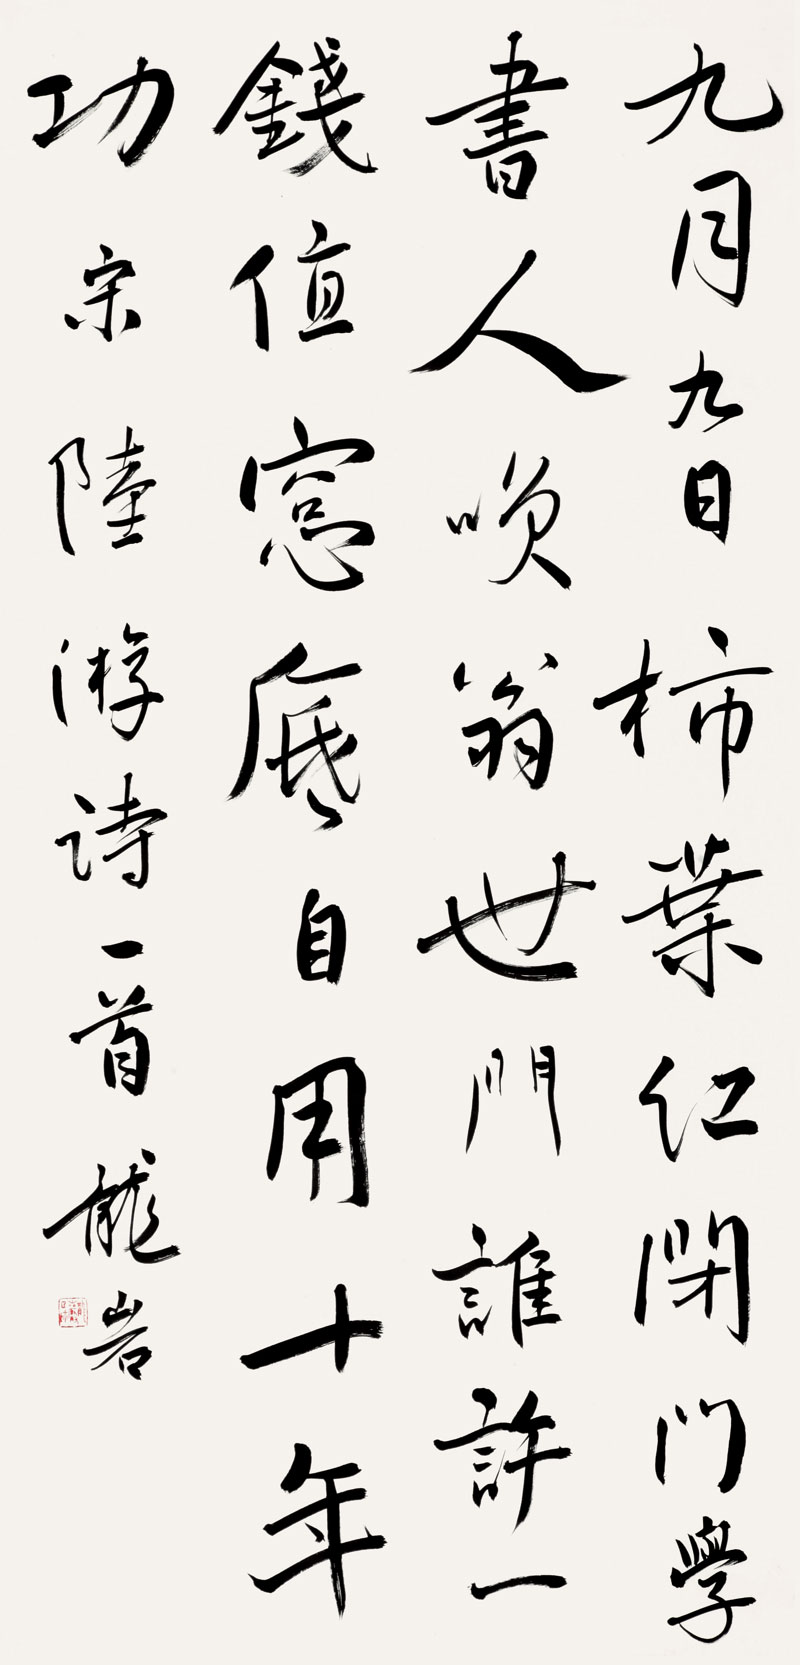 九月九日柿葉红閉门學
書人咲翁世門誰許一
錢值窓底自用十年
功 宋陸游诗一首 龍岩